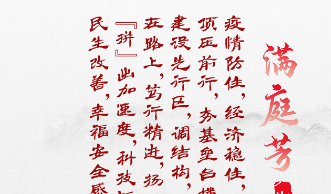 满庭芳
疫情防住，经济稳住，
顶压前行，夯基垒台
建设先行区，调结构，
在路上，笃行精进，扬
『拼』出加速度，科技
民生改善，幸福安全感